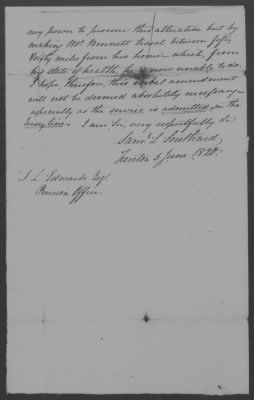 any power to procure this alteration but by
making Mr. Bennett travel between fifty
& sixty miles from his home which, from
his state of health, he is now unable to do.
I hope, therefore, this verbal amendment
will not be deemed absolutely necessary
especially as the service is admitted, in the
I am Sir, very respectfully &c
Saml. L. Southard,
Trenton 5 June 1828.
J. L. Edwards Esq
Pension Office